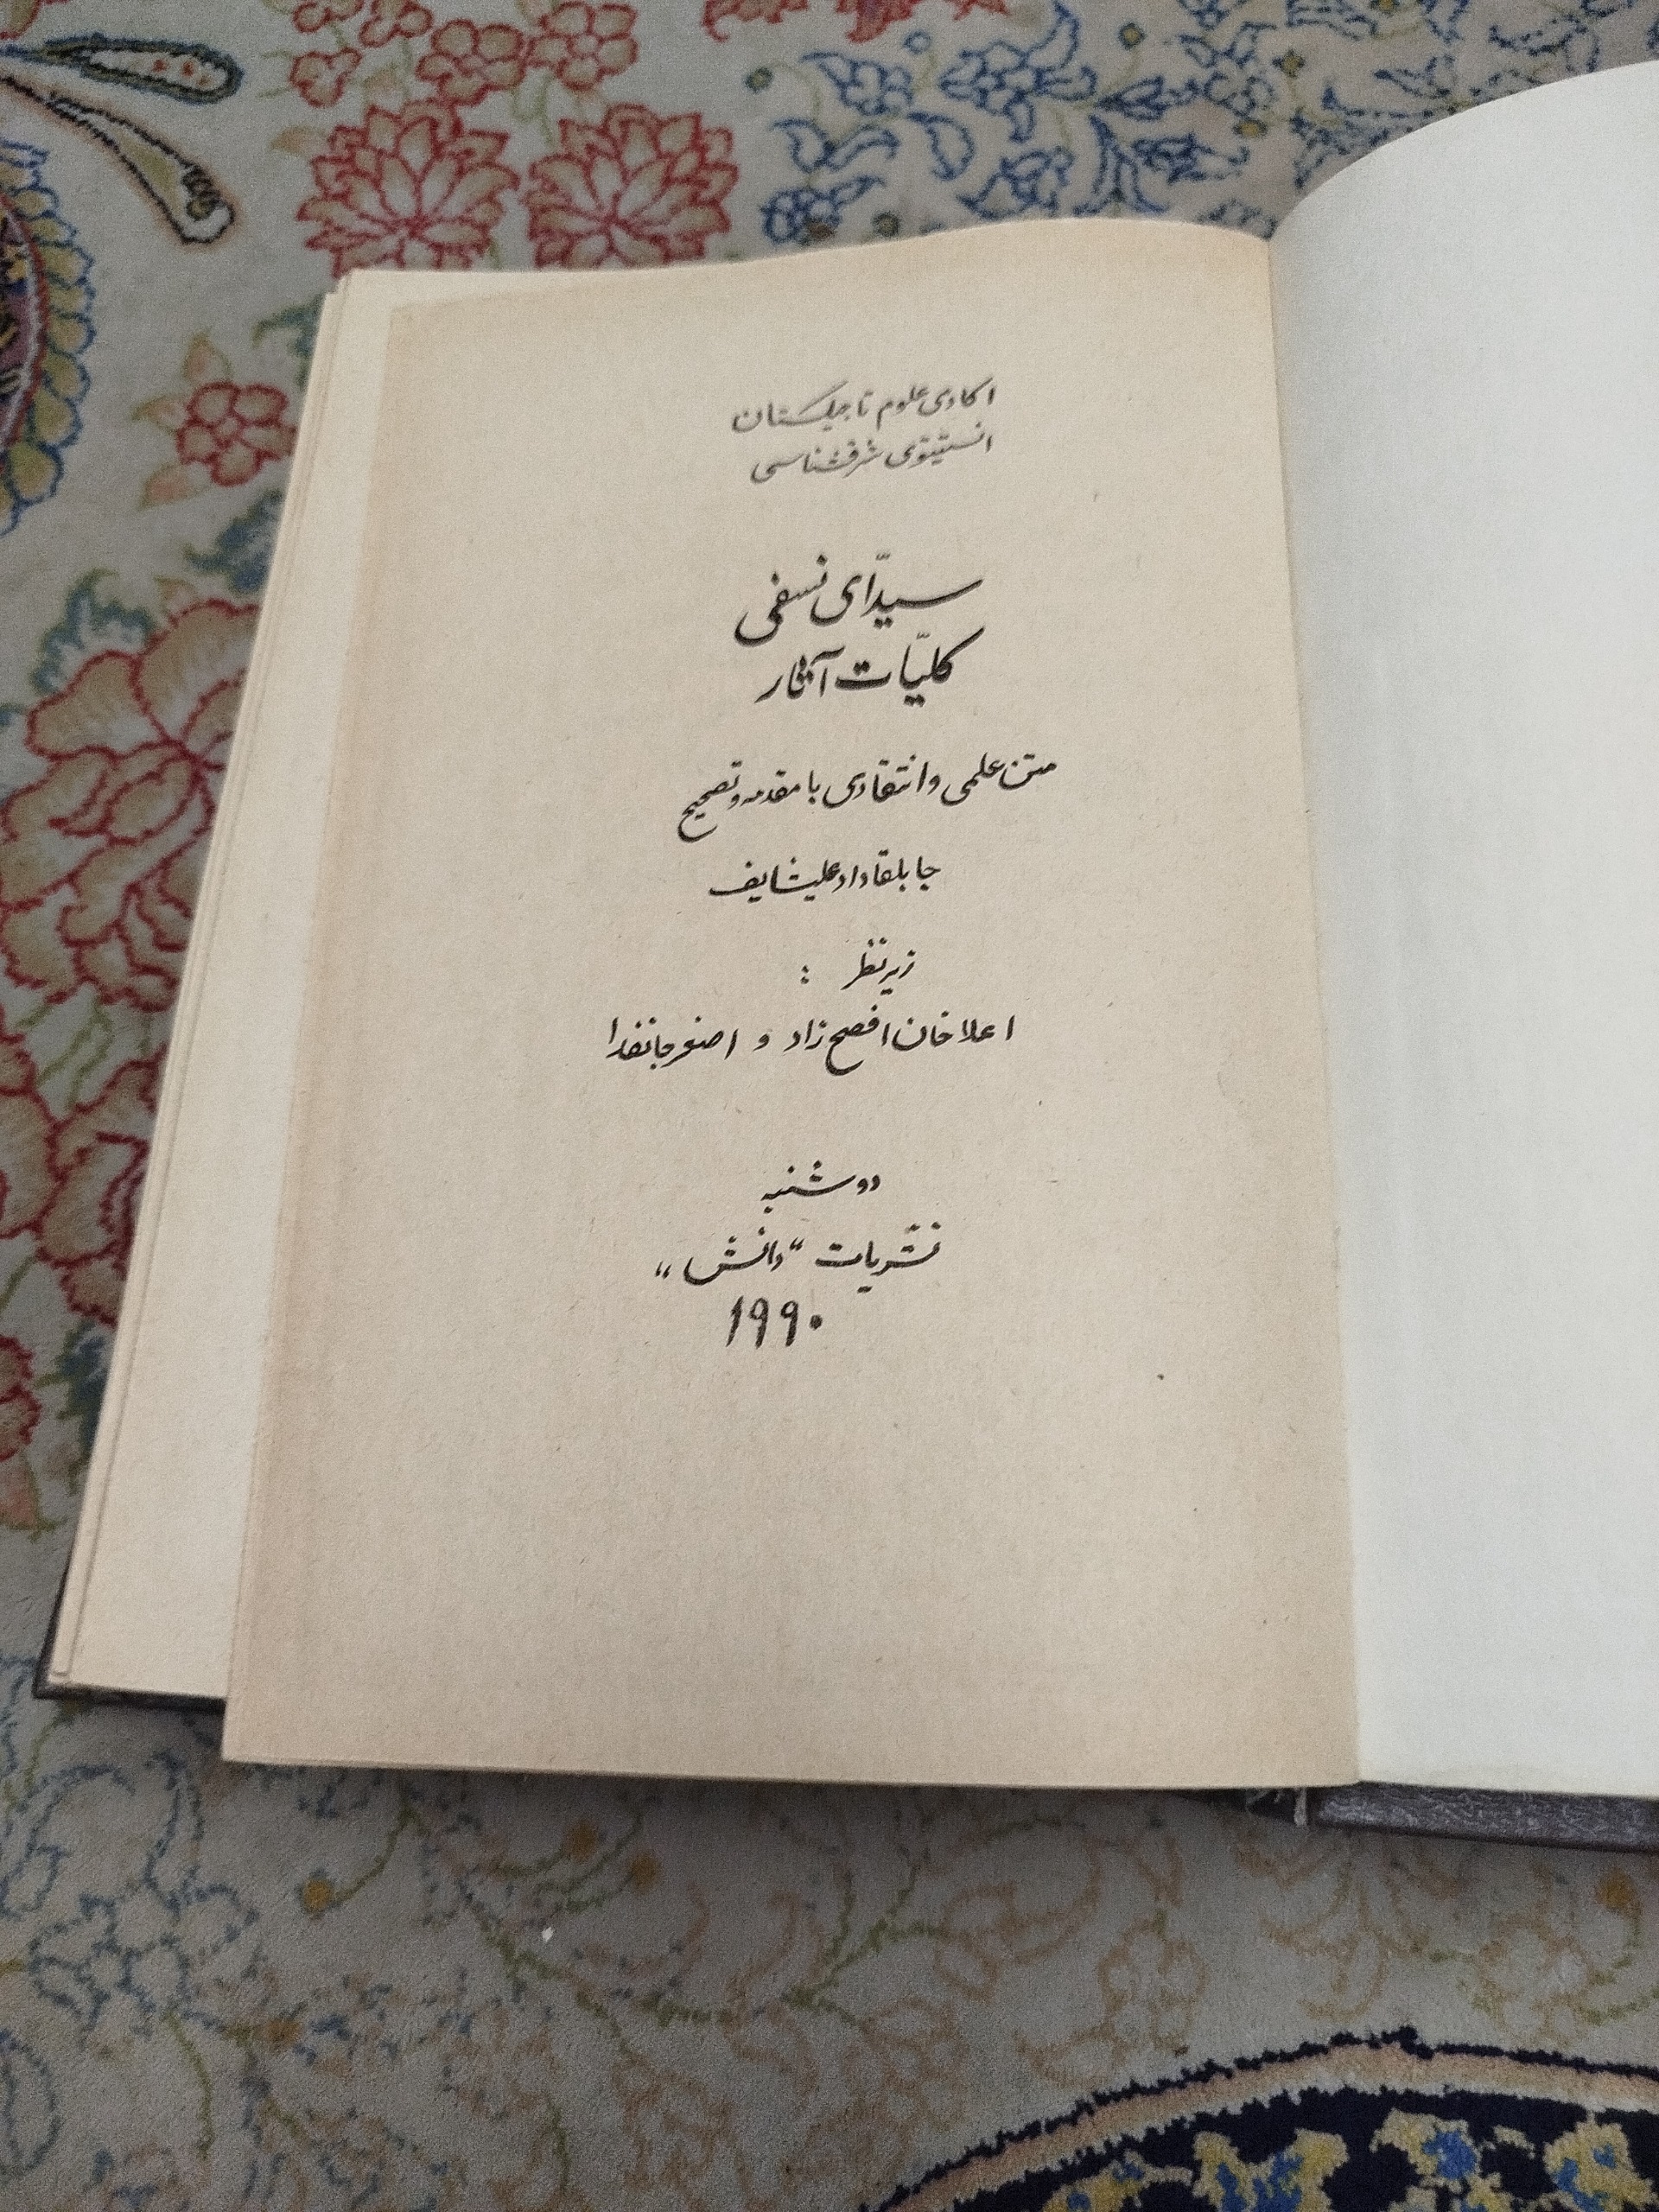 اکادمی علوم تاجیکستان
انستیتوی شرقشناسی
سیّدای نسفی
کلیّات آثار
متن علمی و انتقادی با مقدمه و تصحیح
جابلقا داد علیشایف
زیر نظر :
اعلاخان افصح زاد و اصغر جانفدا
دوشنبه
نشریات “دانش„
۱۹۹۰